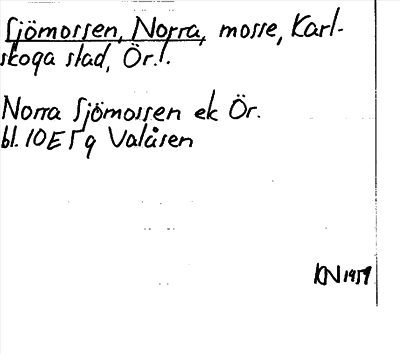 Sjömossen, Norra, mosse, Karl-
skoga stad, Ör.l.
Norra Sjömossen ek Ör.
bl. 10E5g Valåsen
KN 1959